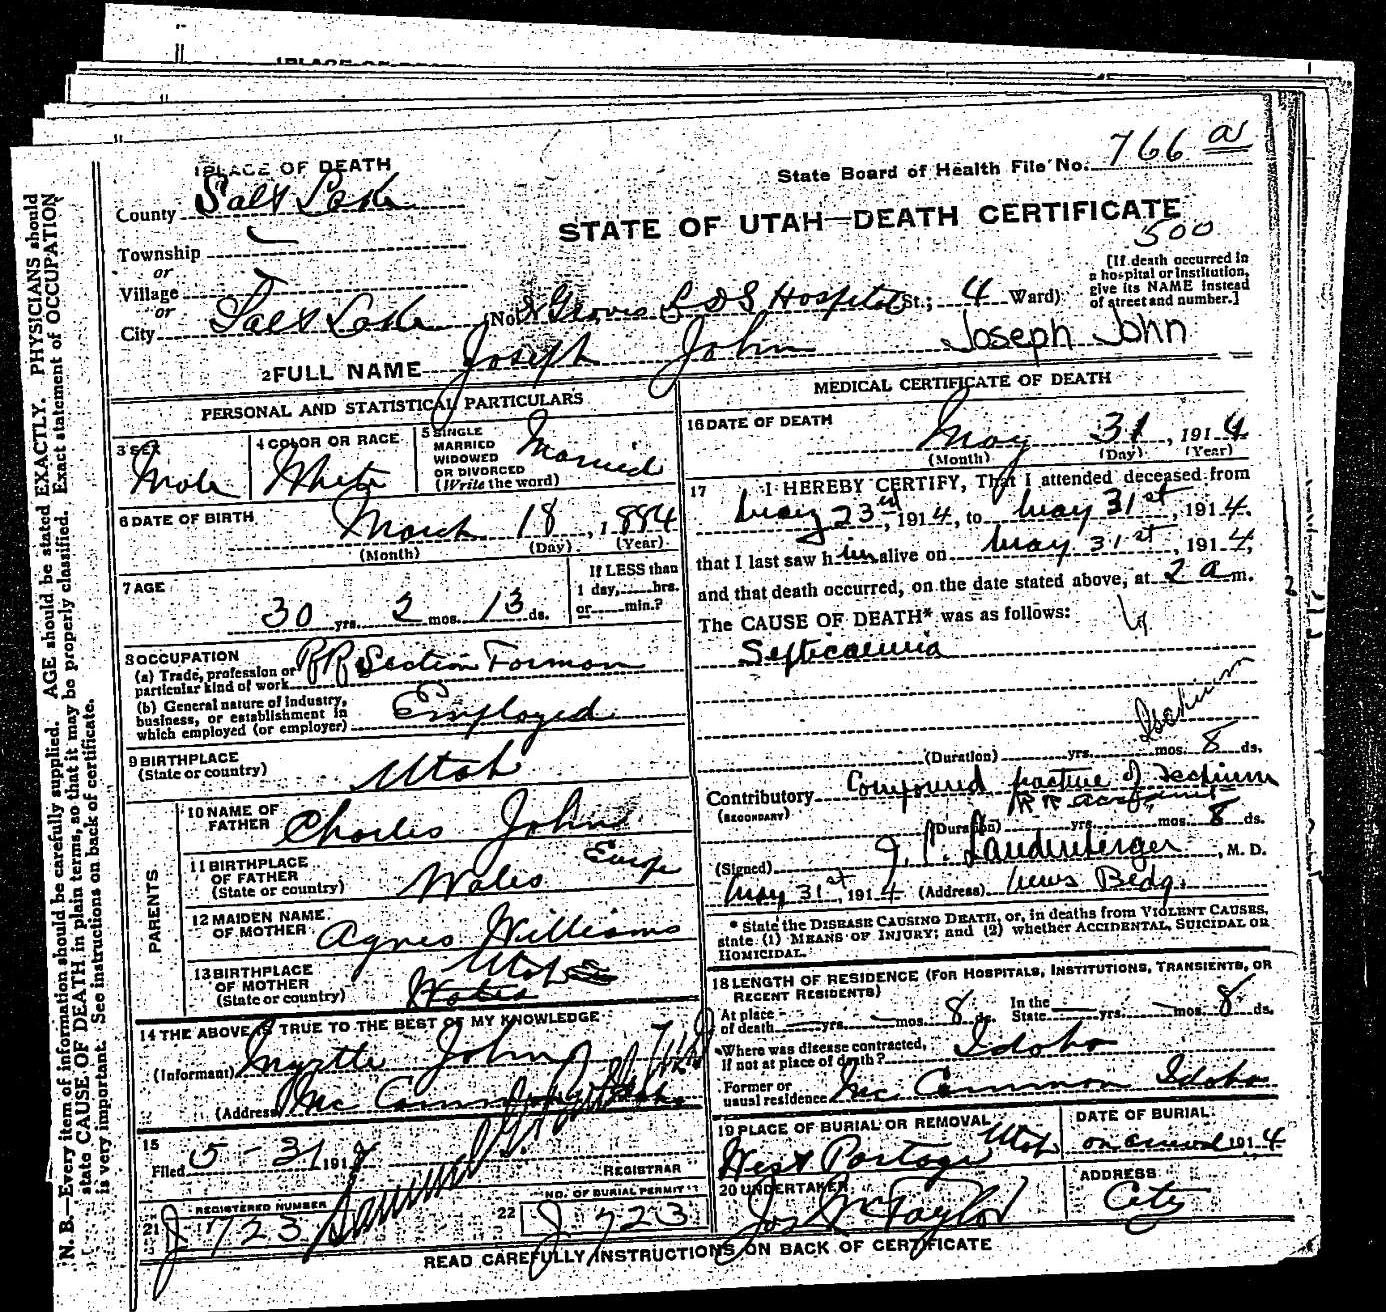 1 PLACE OF DEATH
County Salt Lake
Township
or
Village
or
City Salt Lake
State Board of Health File No. 766 as
STATE OF UTAH—DEATH CERTIFICATE
500
(No. Groves L D S Hospital St.; 4 Ward)
[If death occurred in
a hospital or institution,
give its NAME instead
of street and number.]
2 FULL NAME Joseph John
Joseph John
PERSONAL AND STATISTICAL PARTICULARS
3 SEX
Male
4 COLOR OR RACE
White
5 SINGLE
MARRIED
WIDOWED
OR DIVORCED
(Write the word)
Married
6 DATE OF BIRTH
March 18, 1884
(Month) (Day) (Year)
7 AGE
30 yrs. 2 mos. 13 ds.
If LESS than
1 day, hrs.
or min.?
8 OCCUPATION
(a) Trade, profession or
particular kind of work RR Section Forman
(b) General nature of industry,
business, or establishment in
which employed (or employer) Employed
9 BIRTHPLACE
(State or country) Utah
PARENTS
10 NAME OF
FATHER Charles John
11 BIRTHPLACE
OF FATHER
(State or country) Wales Europe
12 MAIDEN NAME
OF MOTHER Agnes Williams
13 BIRTHPLACE
OF MOTHER
(State or country) Utah
Wales
14 THE ABOVE IS TRUE TO THE BEST OF MY KNOWLEDGE
(Informant) Myrtle John
(Address) Mc Cammon Idaho
15
Filed 5-31 191
REGISTRAR
REGISTERED NUMBER
21 J 723
NO. OF BURIAL PERMIT
22 J 723
MEDICAL CERTIFICATE OF DEATH
16 DATE OF DEATH
May 31, 1914
(Month) (Day) (Year)
17 I HEREBY CERTIFY, That I attended deceased from
May 23rd, 1914, to May 31st, 1914.
that I last saw him alive on May 31st, 1914,
and that death occurred, on the date stated above, at 2 a m.
The CAUSE OF DEATH* was as follows:
Septicaemia
Ischium
(Duration) yrs. mos. 8 ds.
Contributory Compound fracture of Ischium
(SECONDARY) RR accident
(Duration) yrs. mos. 8 ds.
(Signed) Landenberger, M. D.
May 31st, 1914 (Address) News Bldg.
* State the DISEASE CAUSING DEATH, or, in deaths from VIOLENT CAUSES,
state (1) MEANS OF INJURY; and (2) whether ACCIDENTAL, SUICIDAL OR
HOMICIDAL.
18 LENGTH OF RESIDENCE (FOR HOSPITALS, INSTITUTIONS, TRANSIENTS, OR
RECENT RESIDENTS)
At place
of death yrs. mos. 8 ds.
In the
State yrs. mos. 8 ds.
Where was disease contracted,
if not at place of death? Idaho
Former or
usual residence Mc Cammon Idaho
19 PLACE OF BURIAL OR REMOVAL
West Portage Utah
DATE OF BURIAL
on arrival 1914
20 UNDERTAKER
Jos Wm Taylor
ADDRESS
City
READ CAREFULLY INSTRUCTIONS ON BACK OF CERTIFICATE
N. B.—Every item of information should be carefully supplied. AGE should be stated EXACTLY. PHYSICIANS should
state CAUSE OF DEATH in plain terms, so that it may be properly classified. Exact statement of OCCUPATION
is very important. See instructions on back of certificate.